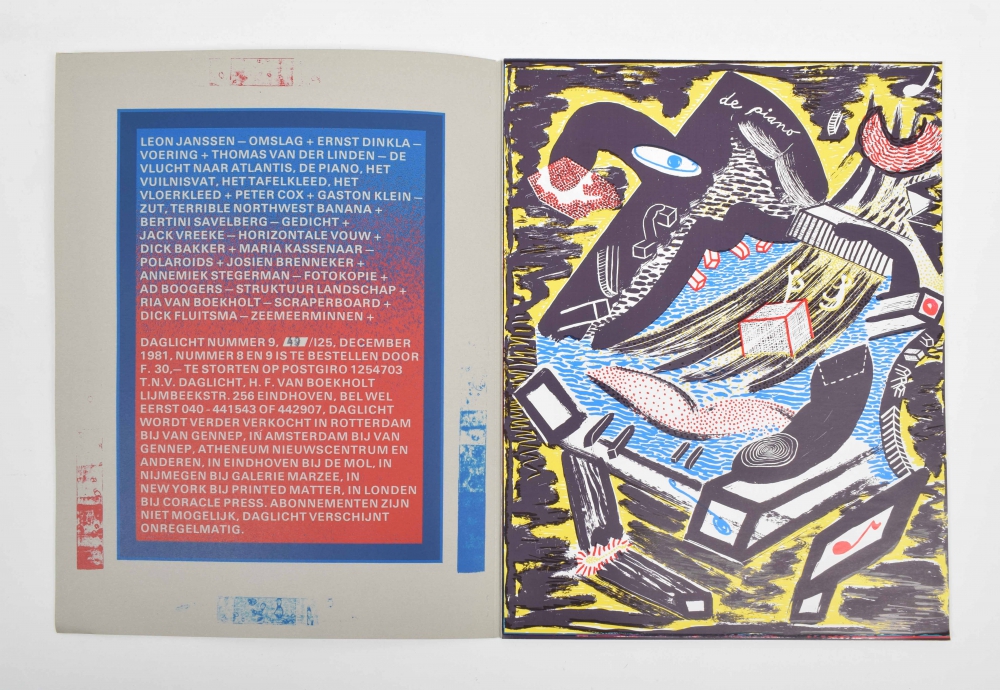 LEON JANSSEN – OMSLAG + ERNST DINKLA –
VOERING + THOMAS VAN DER LINDEN – DE
VLUCHT NAAR ATLANTIS, DE PIANO, HET
VUILNISVAT, HET TAFELKLEED, HET
VLOERKLEED + PETER COX + GASTON KLEIN –
ZUT, TERRIBLE NORTHWEST BANANA +
BERTINI SAVELBERG – GEDICHT +
JACK VREEKE – HORIZONTALE VOUW +
DICK BAKKER + MARIA KASSENAAR –
POLAROIDS + JOSIEN BRENNEKER +
ANNEMIEK STEGERMAN – FOTOKOPIE +
AD BOOGERS – STRUKTUUR LANDSCHAP +
RIA VAN BOEKHOLT – SCRAPERBOARD +
DICK FLUITSMA – ZEEMEERMINNEN +
DAGLICHT NUMMER 9, 49 /125, DECEMBER
1981, NUMMER 8 EN 9 IS TE BESTELLEN DOOR
F. 30,– TE STORTEN OP POSTGIRO 1254703
T.N.V. DAGLICHT, H. F. VAN BOEKHOLT
LIJMBEEKSTR. 256 EINDHOVEN, BEL WEL
EERST 040 - 441543 OF 442907, DAGLICHT
WORDT VERDER VERKOCHT IN ROTTERDAM
BIJ VAN GENNEP, IN AMSTERDAM BIJ VAN
GENNEP, ATHENEUM NIEUWSCENTRUM EN
ANDEREN, IN EINDHOVEN BIJ DE MOL, IN
NIJMEGEN BIJ GALERIE MARZEE, IN
NEW YORK BIJ PRINTED MATTER, IN LONDEN
BIJ CORACLE PRESS. ABONNEMENTEN ZIJN
NIET MOGELIJK, DAGLICHT VERSCHIJNT
ONREGELMATIG.
de piano